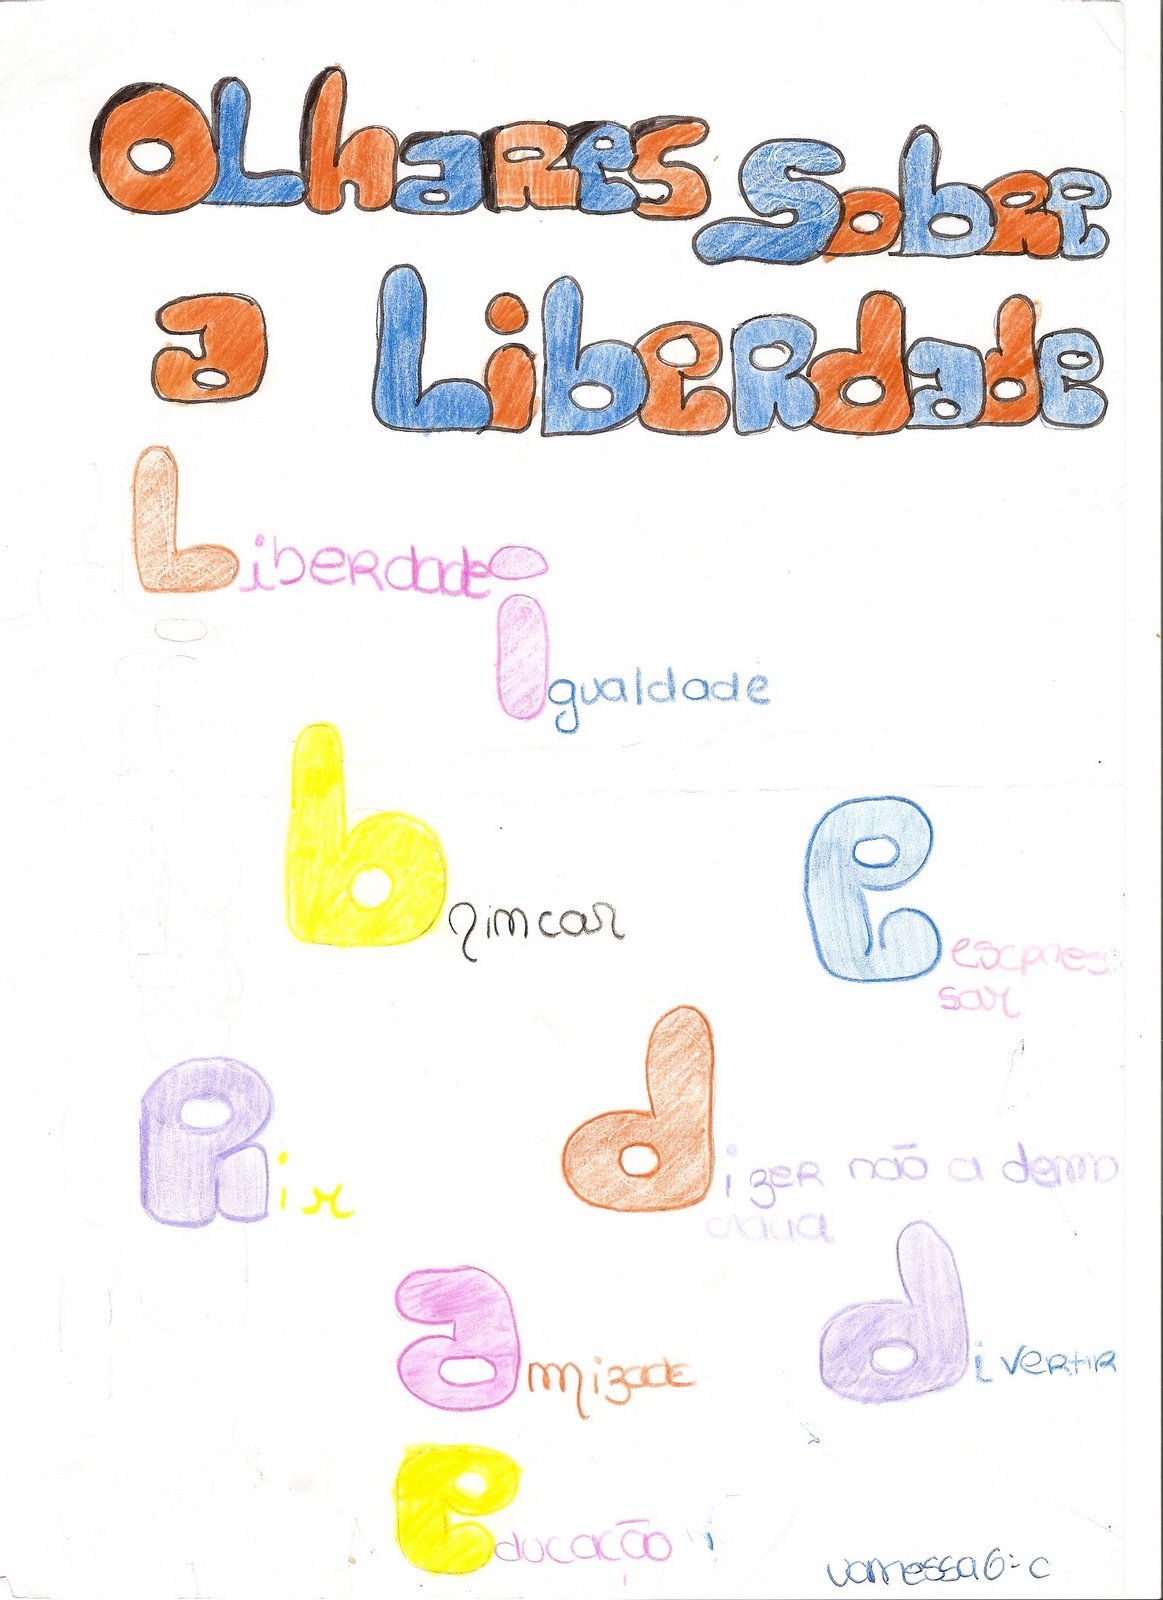 OLhaRes Sobre
a LibeRdade
LibeRdade
igualdade
brimcar
eescpres
sar
Rir
dizeR não a demo
cracia
amizade
divertir
educacão
vanessa 6º c